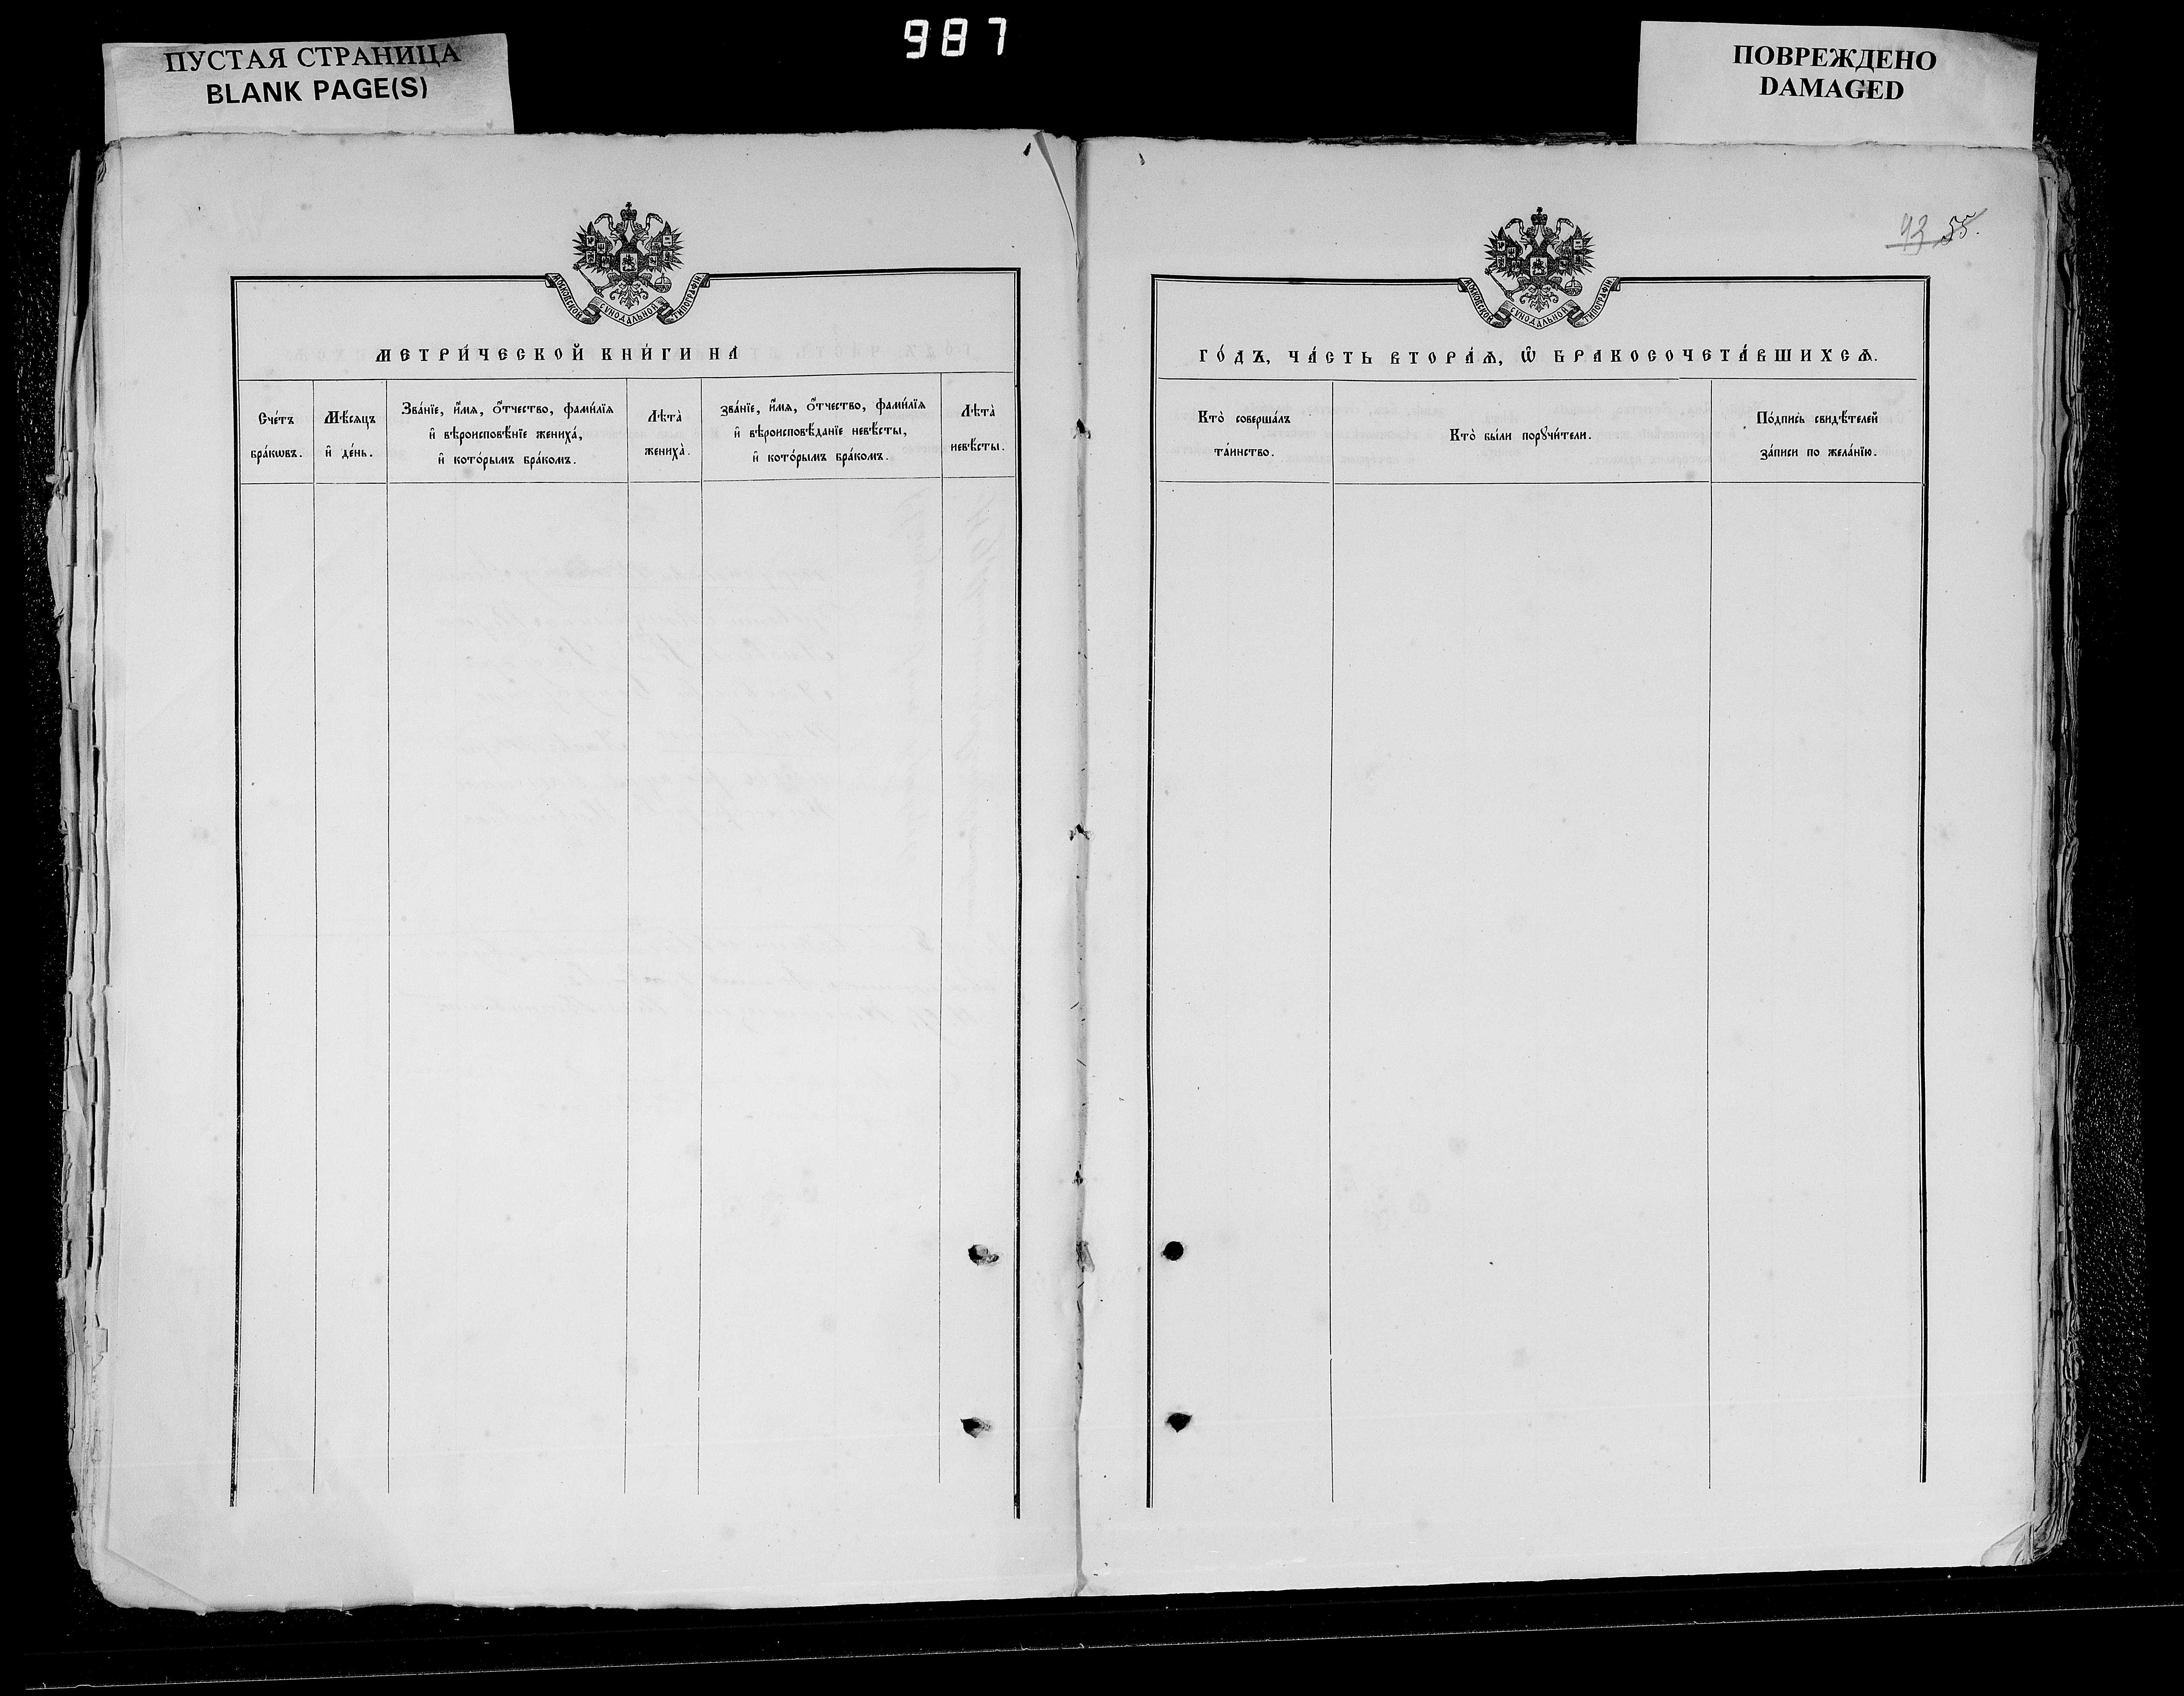 987
ПУСТАЯ СТРАНИЦА
BLANK PAGE(S)
ПОВРЕЖДЕНО
DAMAGED
МОСКОВСКОЙ СѴНОДАЛЬНОЙ ТИПОГРАФІИ
МЕТРИ́ЧЕСКОЙ КНИ́ГИ НА̀
Сче́тъ
бра́кѡвъ.
Мѣ́сяцъ
и҆ де́нь.
Зва́нїе, и҆́мя, ѻ҆́тчество, фами́лїя
и҆ вѣроисповѣ́нїе жениха́,
и҆ кото́рымъ бра́комъ.
Лѣта̀
жениха̀.
зва́нїе, и҆́мя, ѻ҆́тчество, фами́лїя
и҆ вѣроисповѣ́данїе невѣ́сты,
и҆ кото́рымъ бра́комъ.
Лѣта̀
невѣ́сты.
93 55.
МОСКОВСКОЙ СѴНОДАЛЬНОЙ ТИПОГРАФІИ
ГО́ДЪ, ЧА́СТЬ ВТОРА́Ѧ, Ѽ БРАКОСОЧЕТА́ВШИХСѦ.
Кто̀ соверша́лъ
та́инство.
Кто̀ бы́ли порꙋчи́тели.
По́дпись свидѣ́телей
за́писи по жела́нїю.